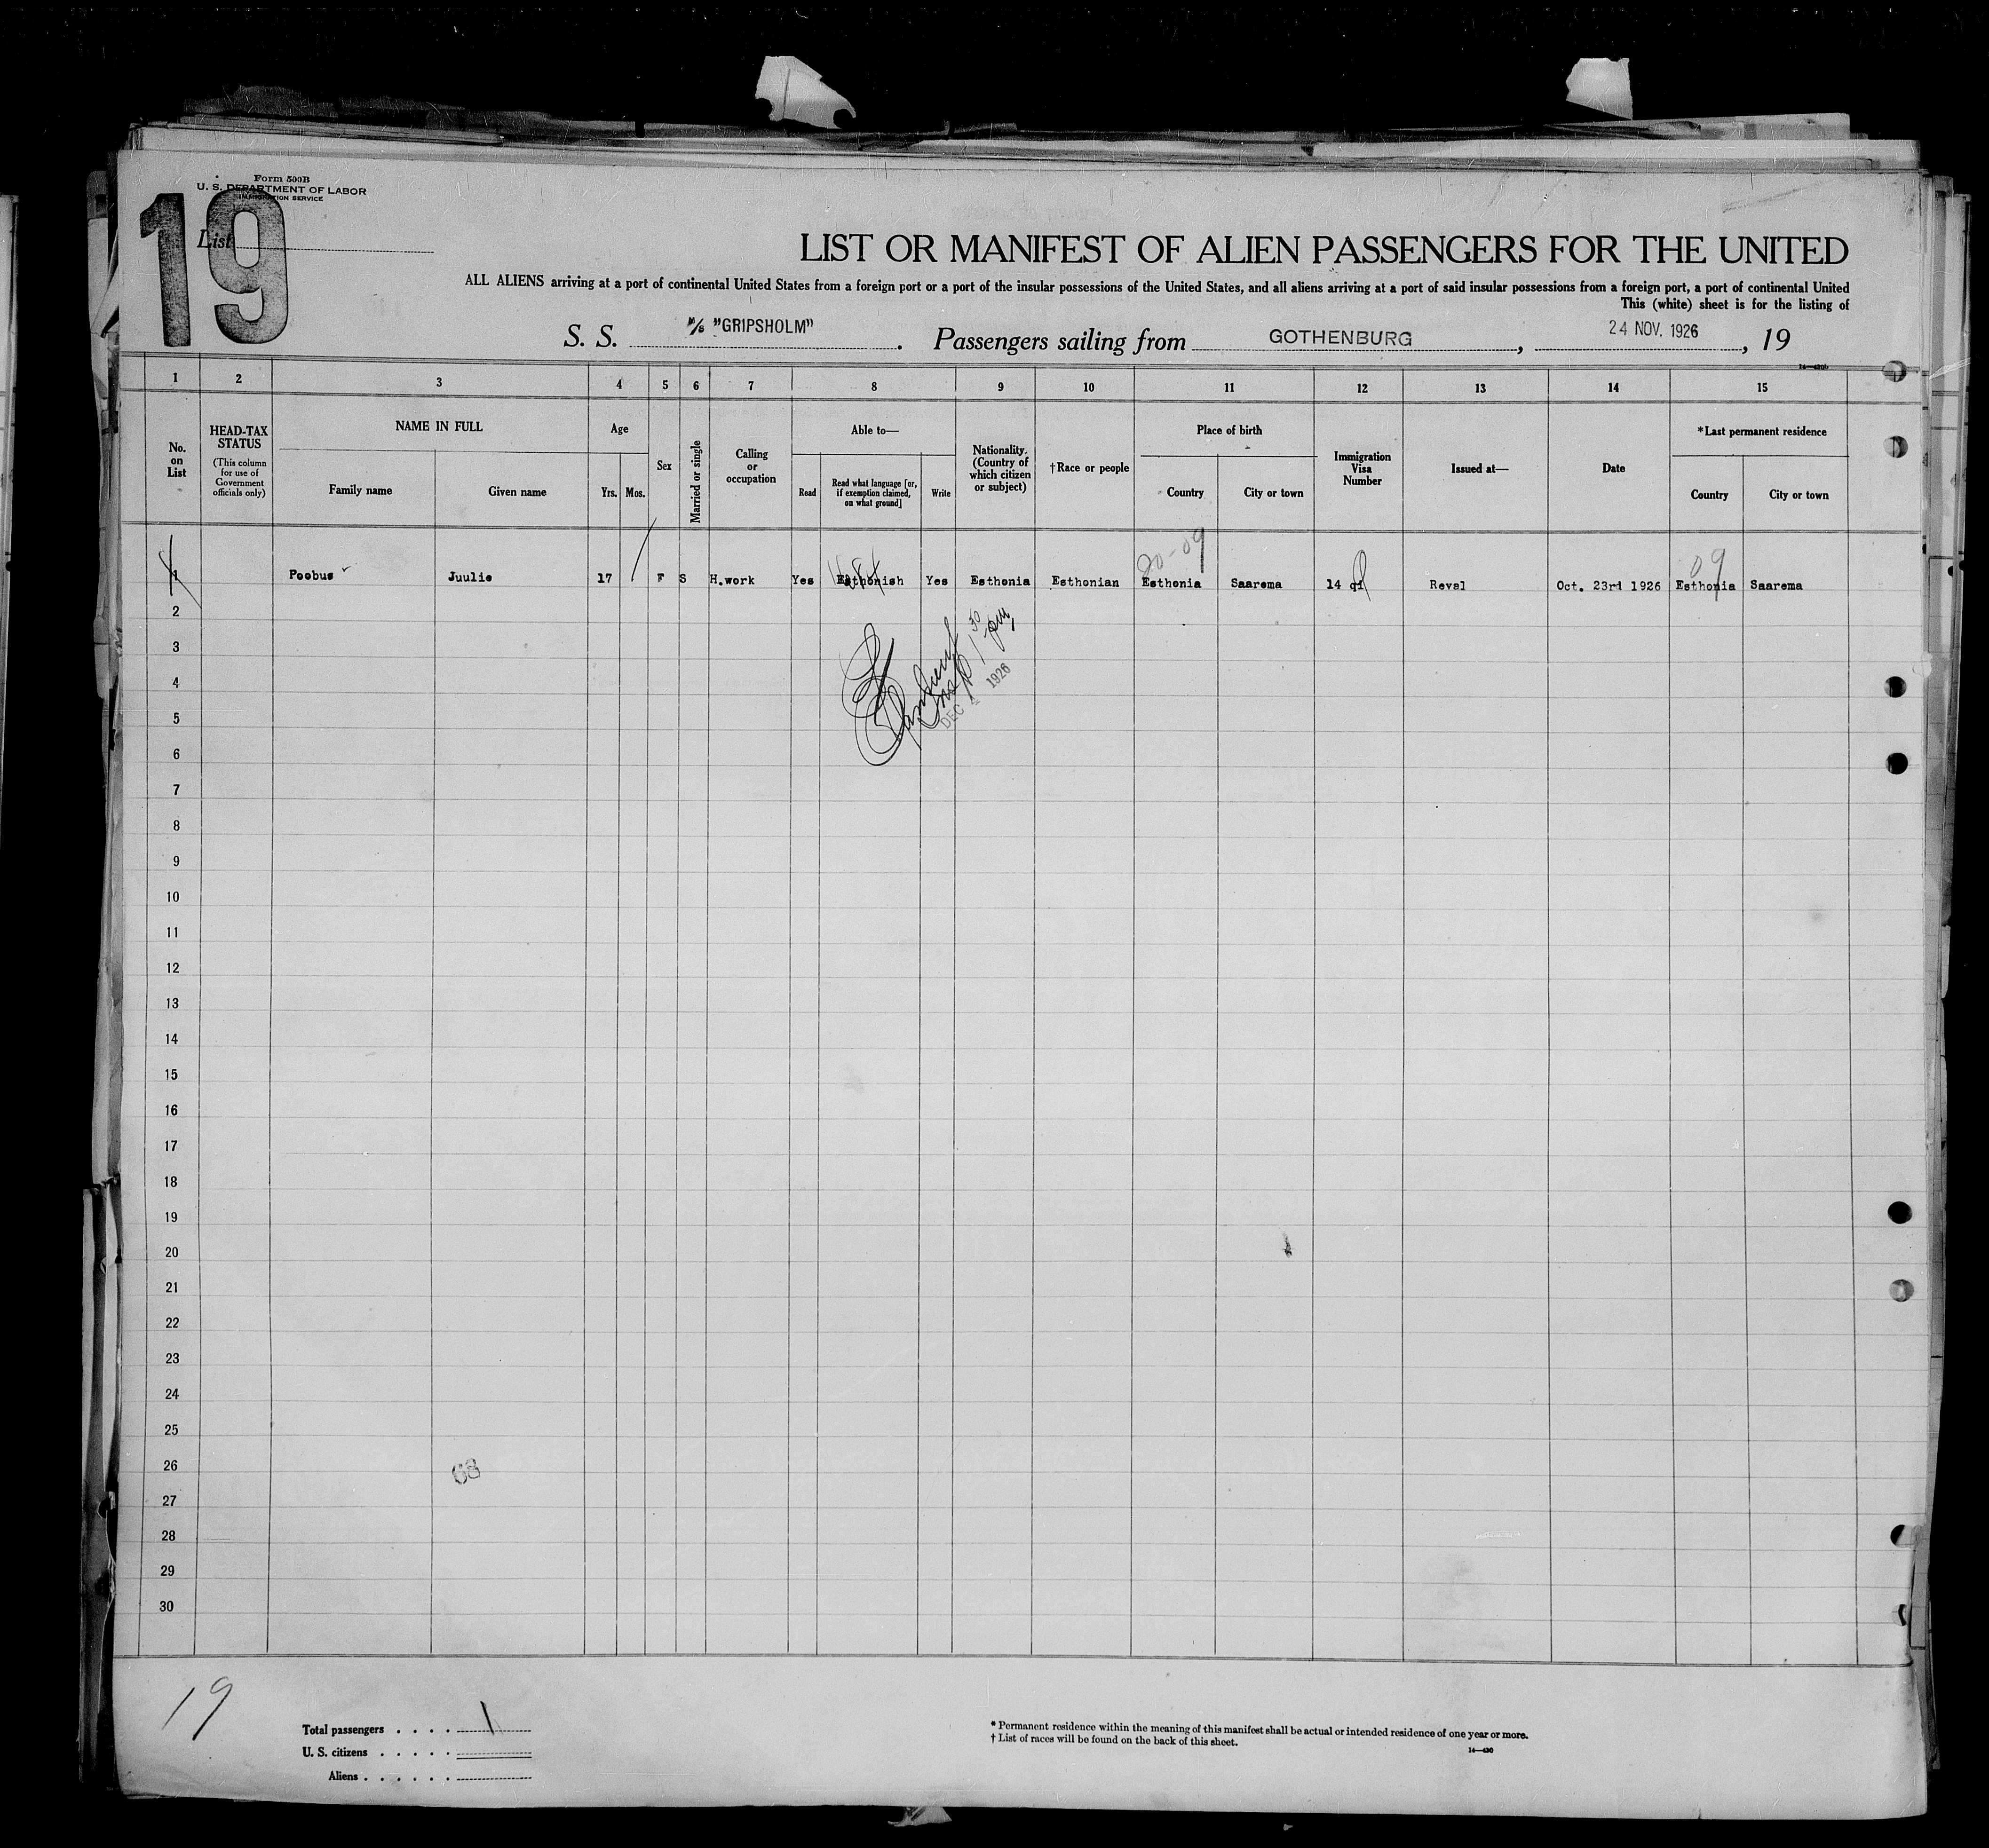 Form 500B
U. S. DEPARTMENT OF LABOR
IMMIGRATION SERVICE
19
List
LIST OR MANIFEST OF ALIEN PASSENGERS FOR THE UNITED
ALL ALIENS arriving at a port of continental United States from a foreign port or a port of the insular possessions of the United States, and all aliens arriving at a port of said insular possessions from a foreign port, a port of continental United
This (white) sheet is for the listing of
S. S. M/S "GRIPSHOLM". Passengers sailing from GOTHENBURG, 24 NOV. 1926, 19
1 2 3 4 5 6 7 8 9 10 11 12 13 14 15
No. on List
HEAD-TAX STATUS
(This column for use of Government officials only)
NAME IN FULL
Family name
Given name
Age
Yrs. Mos.
Sex
Married or single
Calling or occupation
Able to—
Read
Read what language [or, if exemption claimed, on what ground]
Write
Nationality. (Country of which citizen or subject)
†Race or people
Place of birth
Country
City or town
Immigration Visa Number
Issued at—
Date
*Last permanent residence
Country
City or town
20-09
09
1 Poobus Juulie 17 F S H.work Yes Esthonish Yes Esthonia Esthonian Esthonia Saarema 14 Reval Oct. 23rd 1926 Esthonia Saarema
2
3
4
5
6
7
8
9
10
11
12
13
14
15
16
17
18
19
20
21
22
23
24
25
26
27
28
29
30
Insp 1 30 pm
DEC 1926
68
19
Total passengers . . . . 1
U. S. citizens . . . . .
Aliens . . . . . .
* Permanent residence within the meaning of this manifest shall be actual or intended residence of one year or more.
† List of races will be found on the back of this sheet.
14—430